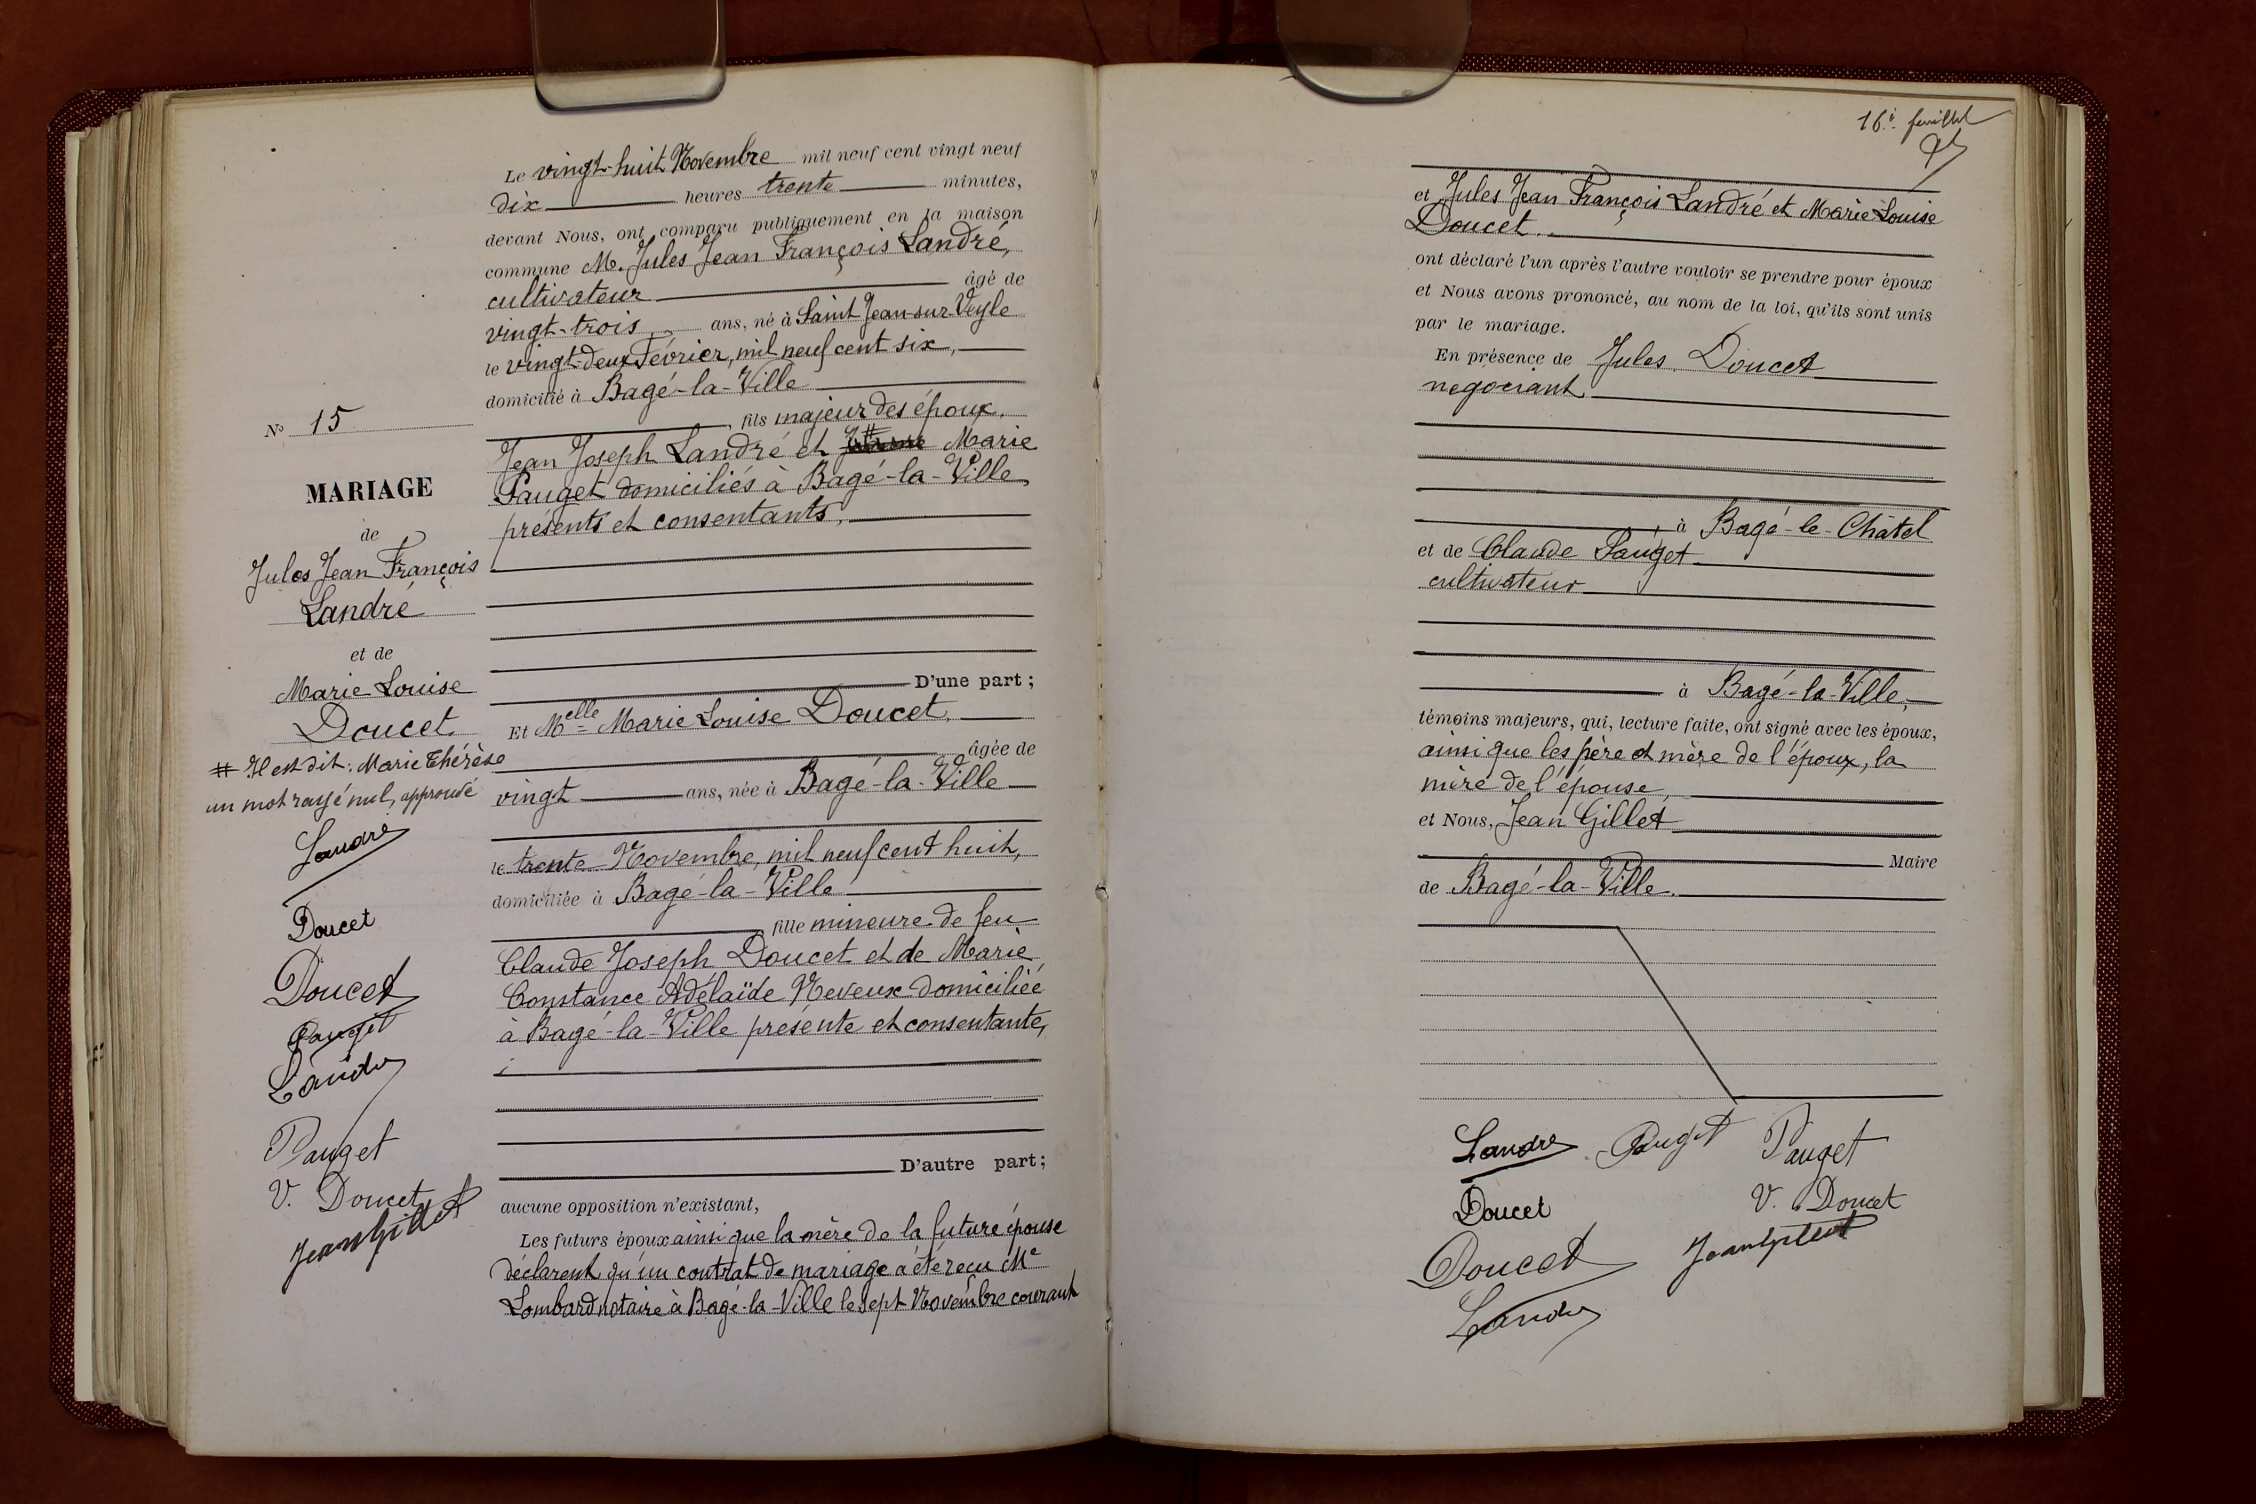 Nº 15
MARIAGE
de
Jules Jean François
Landré
et de
Marie Louise
Doucet
# Il est dit : Marie Thérèse
un mot rayé nul, approuvé
Landré
Doucet
Doucet
Pauget
Landré
Pauget
V. Doucet
Jean Gillet
Le vingt-huit Novembre mil neuf cent vingt neuf
dix heures trente minutes,
devant Nous, ont comparu publiquement en la maison
commune M. Jules Jean François Landré,
cultivateur âgé de
vingt-trois ans, né à Saint Jean-sur-Veyle
le vingt-deux Février, mil neuf cent six,
domicilié à Bagé-la-Ville
, fils majeur des époux
Jean Joseph Landré et # Marie
Pauget domiciliés à Bagé-la-Ville
présents et consentants,
D'une part ;
Et Melle Marie Louise Doucet,
âgée de
vingt ans, née à Bagé-la-Ville
le trente Novembre, mil neuf cent huit,
domiciliée à Bagé-la-Ville
, fille mineure de feu
Claude Joseph Doucet et de Marie
Constance Adélaïde Neveux domiciliée
à Bagé-la-Ville présente et consentante,
D'autre part ;
aucune opposition n'existant,
Les futurs époux ainsi que la mère de la future épouse
déclarent qu'un contrat de mariage a été reçu Me
Lombard notaire à Bagé-la-Ville le sept Novembre courant
16è feuillet
et Jules Jean François Landré et Marie Louise
Doucet.
ont déclaré l'un après l'autre vouloir se prendre pour époux
et Nous avons prononcé, au nom de la loi, qu'ils sont unis
par le mariage.
En présence de Jules Doucet
négociant
à Bagé-le-Châtel
et de Claude Pauget
cultivateur
à Bagé-la-Ville,
témoins majeurs, qui, lecture faite, ont signé avec les époux,
ainsi que les père et mère de l'époux, la
mère de l'épouse,
et Nous, Jean Gillet
Maire
de Bagé-la-Ville.
Landré Pauget Pauget
Doucet V. Doucet
Doucet Jean Gillet
Landré